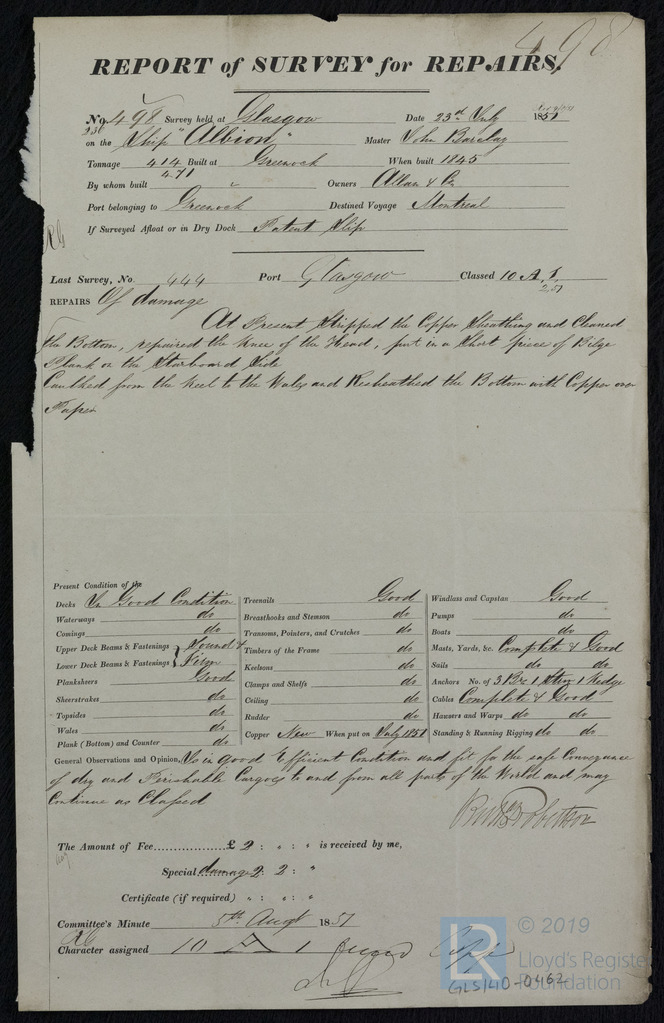 498
REPORT of SURVEY for REPAIRS.
No. 498 Survey held at Glasgow Date 23rd July 1851
230 on the Ship "Albion" Master John Barclay
Tonnage 414 Built at Greenock When built 1845
471
By whom built " Owners Allan & Co
Port belonging to Greenock Destined Voyage Montreal
If Surveyed Afloat or in Dry Dock Patent Slip
Last Survey, No. 444 Port Glasgow Classed 10 A.1.
2,51
REPAIRS Of damage
At Present Stripped the Copper Sheathing and Cleaned
the Bottom, repaired the Knee of the Head, put in a Short piece of Bilge
Plank on the Starboard Side
Caulked from the Keel to the Wales and Resheathed the Bottom with Copper over
Paper
Present Condition of the
Decks In Good Condition
Waterways do
Comings do
Upper Deck Beams & Fastenings } Sound &
Lower Deck Beams & Fastenings } Firm
Planksheers Good
Sheerstrakes do
Topsides do
Wales do
Plank (Bottom) and Counter do
Treenails Good
Breasthooks and Stemson do
Transoms, Pointers, and Crutches do
Timbers of the Frame do
Keelsons do
Clamps and Shelfs do
Ceiling do
Rudder do
Copper New When put on July 1851
Windlass and Capstan Good
Pumps do
Boats do
Masts, Yards, &c. Complete & Good
Sails do do
Anchors No. of 3 Brs 1 Strm 1 Kedge
Cables Complete & Good
Hawsers and Warps do do
Standing & Running Rigging do do
General Observations and Opinion, Is in good Efficient Condition and fit for the safe Conveyance
of dry and Perishable Cargoes to and from all parts of the World and may
Continue as Classed
Robertson
The Amount of Fee ................ £ 2 : " : " is received by me,
Special ..... damage 2 : 2 : "
Certificate (if required) " : " : "
Committee's Minute 5th Augt 1851
Character assigned 10 A 1
© 2019
LR
Lloyd's Register
Foundation
GLS140-0462